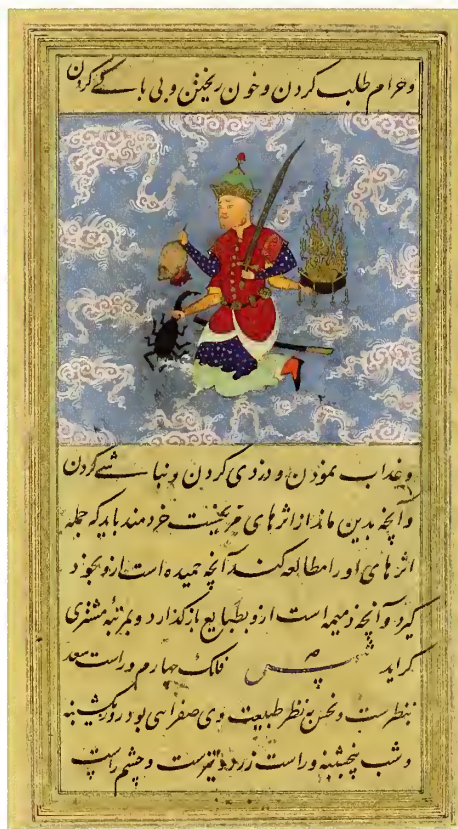 و حرام طلب کردن و خون ریختن و بی باکی کردن
و عذاب نمودن و دزدی کردن و نباشی کردن
و آنچه بدین ماند از اثرهای مریخست خردمند باید که جمله
اثرهای او را مطالعه کند آنچه حمیده است ازو بخود
گیرد و آنچه ذمیمه است ازو بطبایع بازگذارد و بمرتبه مشتری
گراید شمس فلک چهارم وراست سعد
بنظرست و نحس به نظر طبیعت وی صفراهی بود روز یکشنبه
و شب پنجشنبه وراست زرد تیزست و چشم راست